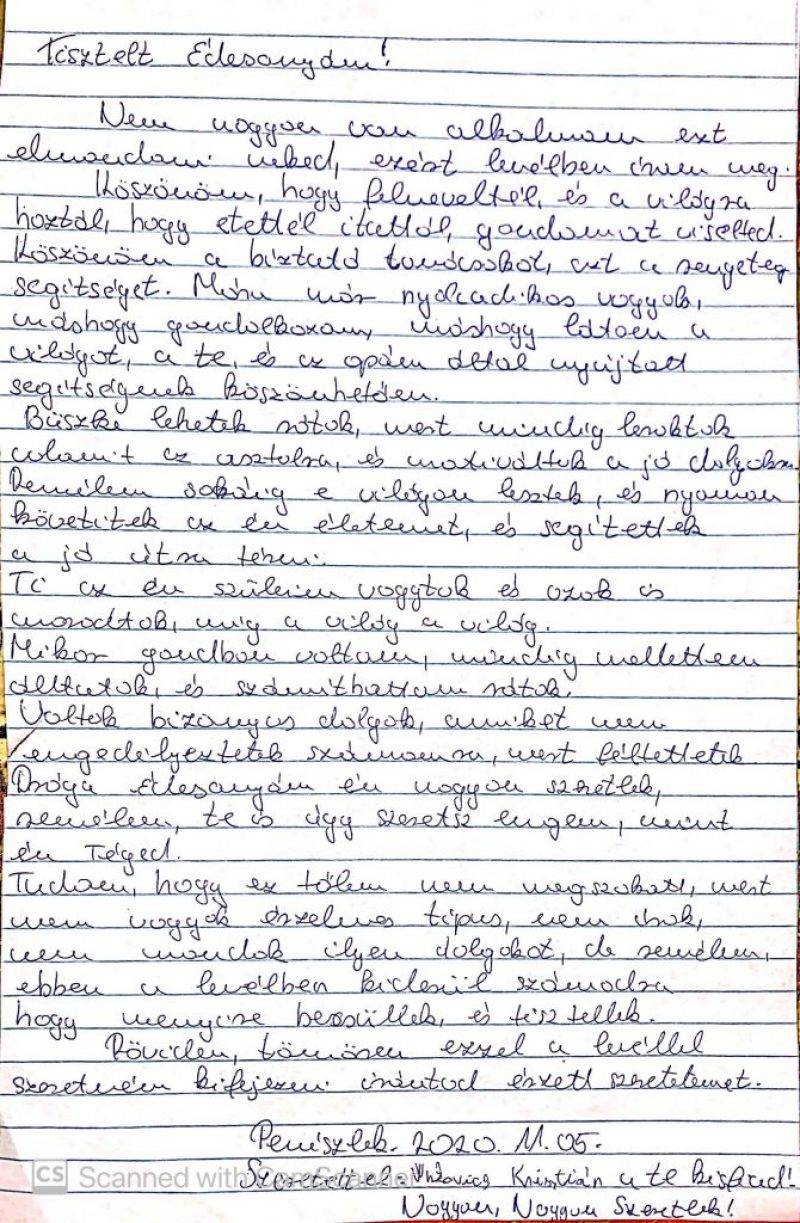 Tisztelt Édesanyám!
Nem nagyon van alkalmam ezt
elmondani neked, ezért levélben írom meg.
Köszönöm, hogy felneveltél, és a világra
hoztál, hogy etettél itattál, gondomat viselted.
Köszönöm a bíztató tanácsokat, azt a rengeteg
segítséget. Mára már nyolcadikos vagyok,
máshogy gondolkozom, máshogy látom a
világot, a te, és az apám által nyújtott
segítségnek köszönhetően.
Büszke lehetek rátok, mert mindig leraktok
valamit az asztalra, és motiváltok a jó dolgokra.
Remélem sokáig e világon lesztek, és nyomon
követitek az én életemet, és segítetek
a jó útra térni.
Ti az én szüleim vagytok és azok is
maradtok, míg a világ a világ.
Mikor gondban voltam, mindig mellettem
álltatok, és számíthattam rátok.
Voltak bizonyos dolgok, amiket nem
engedélyeztetek számomra, mert féltettetek
Drága Édesanyám én nagyon szeretlek,
remélem, te is úgy szeretsz engem, mint
én Téged.
Tudom, hogy ez tőlem nem megszokott, mert
nem vagyok érzelmes típus, nem írok,
nem mondok ilyen dolgokat, de remélem,
ebben a levélben kiderül számodra
hogy menyire becsüllek, és tisztellek.
Röviden, tömören ezzel a levéllel
szeretném kifejezni irántad érzett szeretetemet.
Penészlek. 2020. 11. 05.
Szeretettel: Krisztián a te kisfiad!
Nagyon, Nagyon Szeretlek!
CS Scanned with CamScanner